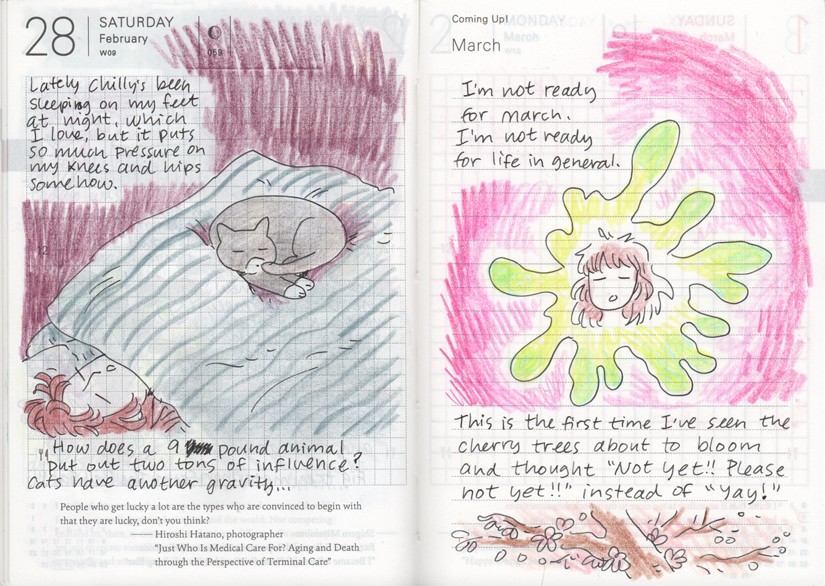 28
SATURDAY
February
W09
059
Lately Chilly's been
sleeping on my feet
at night, which
I love, but it puts
so much pressure on
my knees and hips
somehow.
How does a 9 pound animal
put out two tons of influence?
Cats have another gravity...
People who get lucky a lot are the types who are convinced to begin with
that they are lucky, don't you think?
—— Hiroshi Hatano, photographer
"Just Who Is Medical Care For? Aging and Death
through the Perspective of Terminal Care"
Coming Up!
March
I'm not ready
for march.
I'm not ready
for life in general.
This is the first time I've seen the
cherry trees about to bloom
and thought "Not yet!! Please
not yet!!" instead of "Yay!"